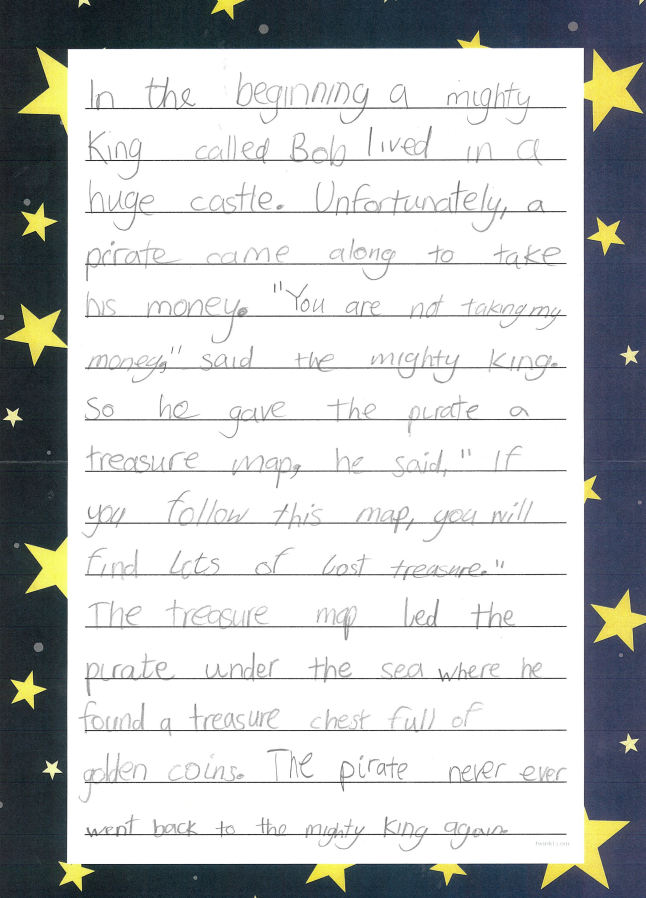 In the beginning a mighty
King called Bob lived in a
huge castle. Unfortunately, a
pirate came along to take
his money. "You are not taking my
money," said the mighty King.
So he gave the pirate a
treasure map, he said, "If
you follow this map, you will
find lots of lost treasure."
The treasure map led the
pirate under the sea where he
found a treasure chest full of
golden coins. The pirate never ever
went back to the mighty King again.
twinkl.com